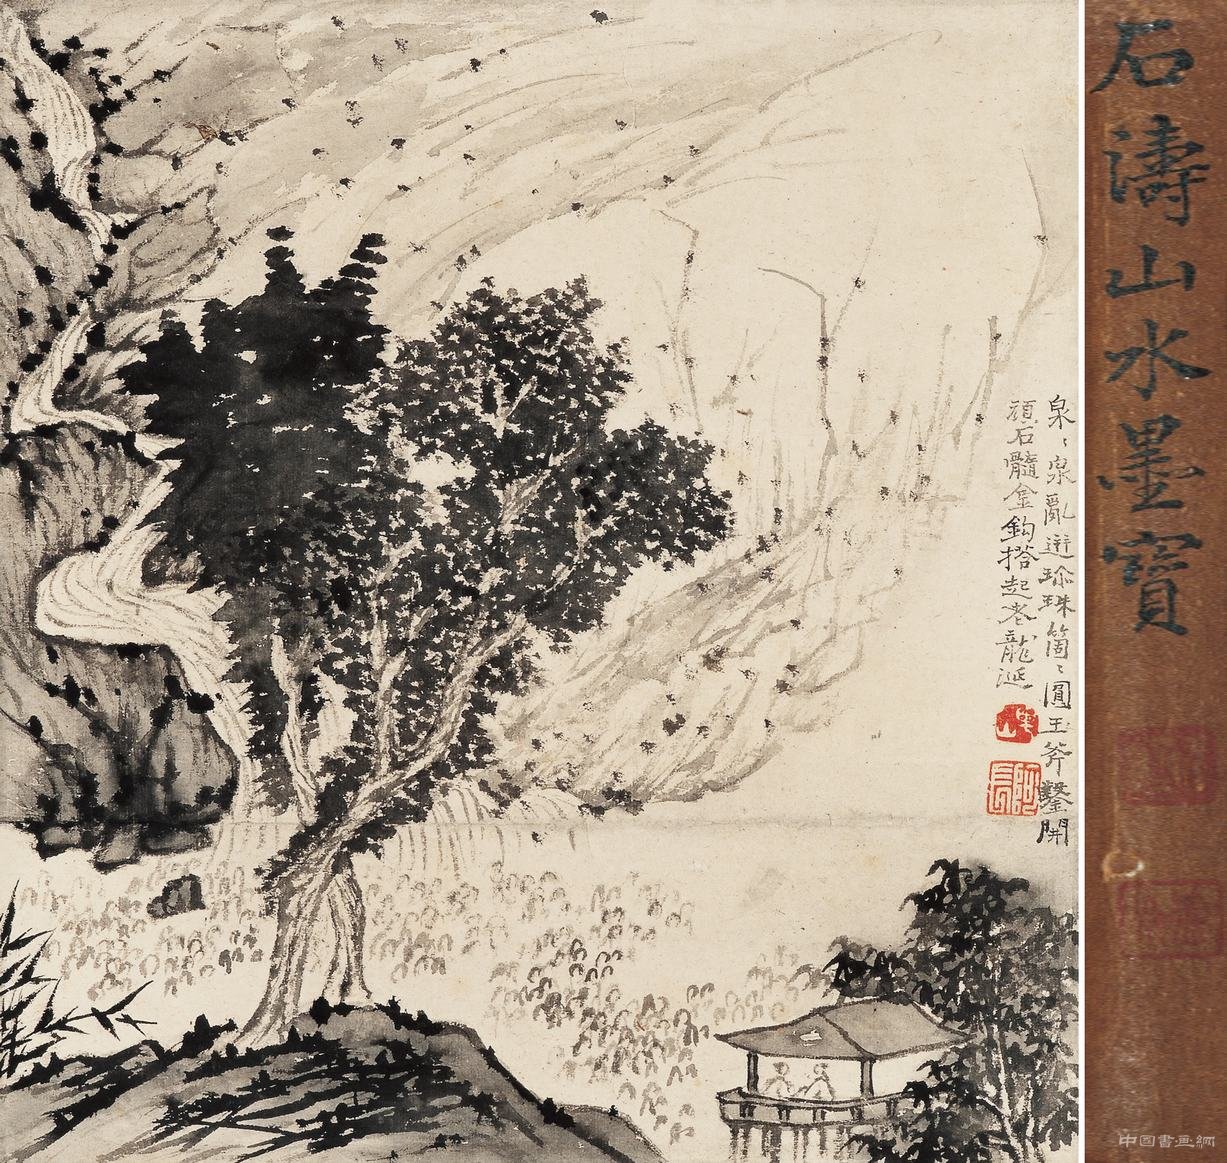 泉、泉亂迸珍珠箇、圓玉斧鑿開
頑石髓金鉤搭起老龍涎
石濤山水墨寶
中国書画網